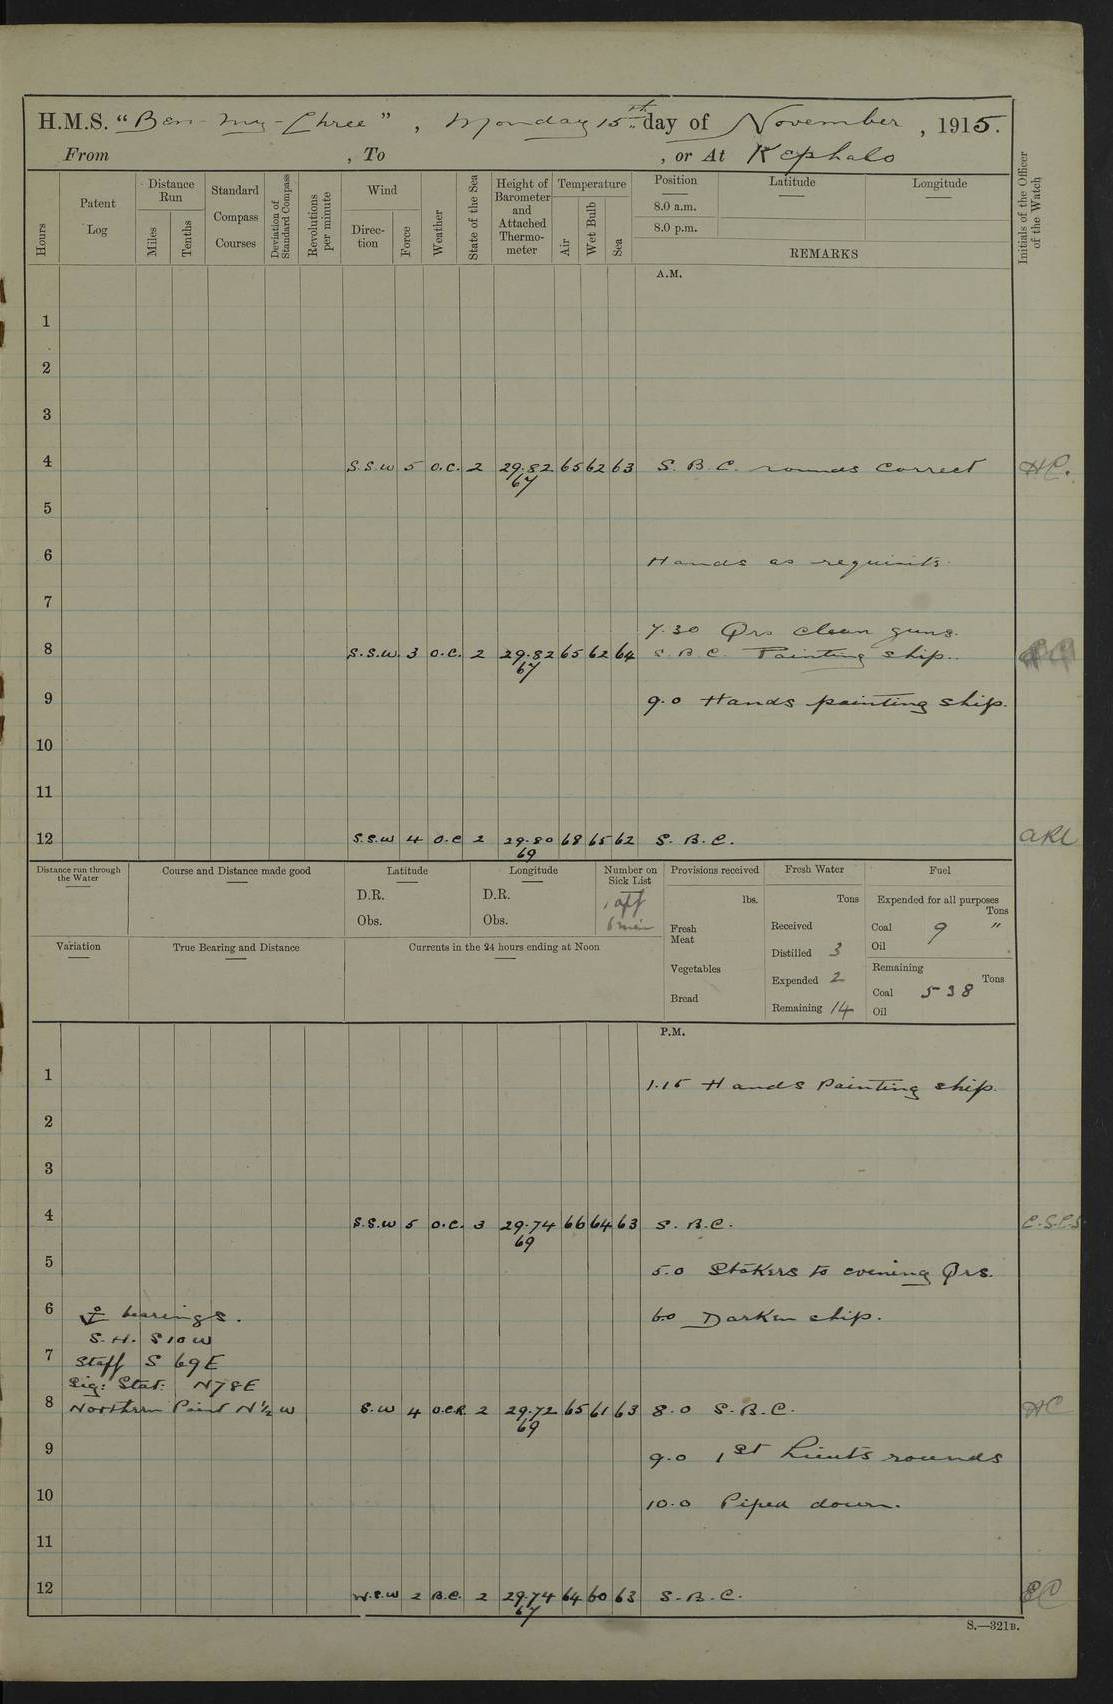 H.M.S. "Ben-my-Chree", Monday 15th day of November, 1915.
From , To , or At Kephalo
Hours
Patent Log
Distance Run
Miles
Tenths
Standard Compass Courses
Deviation of Standard Compass
Revolutions per minute
Wind
Direc-tion
Force
Weather
State of the Sea
Height of Barometer and Attached Thermo-meter
Temperature
Air
Wet Bulb
Sea
Position
8.0 a.m.
8.0 p.m.
Latitude
Longitude
REMARKS
Initials of the Officer of the Watch
A.M.
1
2
3
4 S.S.W 5 O.C. 2 29.82 65 62 63 S. B. C. rounds correct H.C.
67
5
6 Hands as requisite
7
7.30 Qrs clean guns.
8 S.S.W. 3 O.C. 2 29.82 65 62 64 S. B. C. Painting ship.
67
9 9.0 Hands painting ship.
10
11
12 S.S.W 4 O.C 2 29.80 68 65 62 S. B. C.
69
Distance run through the Water
Course and Distance made good
Latitude
D.R.
Obs.
Longitude
D.R.
Obs.
Number on Sick List
1 off
6 men
Provisions received
lbs.
Fresh Meat
Vegetables
Bread
Fresh Water
Tons
Received
Distilled 3
Expended 2
Remaining 14
Fuel
Expended for all purposes
Tons
Coal 9 "
Oil
Remaining
Tons
Coal 538
Oil
Variation
True Bearing and Distance
Currents in the 24 hours ending at Noon
P.M.
1 1.15 Hands Painting ship.
2
3
4 S.S.W 5 O.C. 3 29.74 66 64 63 S. B.C. C.S.C.S.
69
5 5.0 Stokers to evening Qrs.
6 bearings. 6.0 Darken ship.
S.H. S10W
7 Staff S 69E
Sig: Stat: N78E
8 Northern Point N½W S.W 4 O.C.R. 2 29.72 65 61 63 8.0 S.B.C. HC
69
9 9.0 1st Lieuts rounds
10 10.0 Piped down.
11
12 W.S.W 2 B.C. 2 29.74 64 60 63 S.B.C. EC
67
S.—321B.